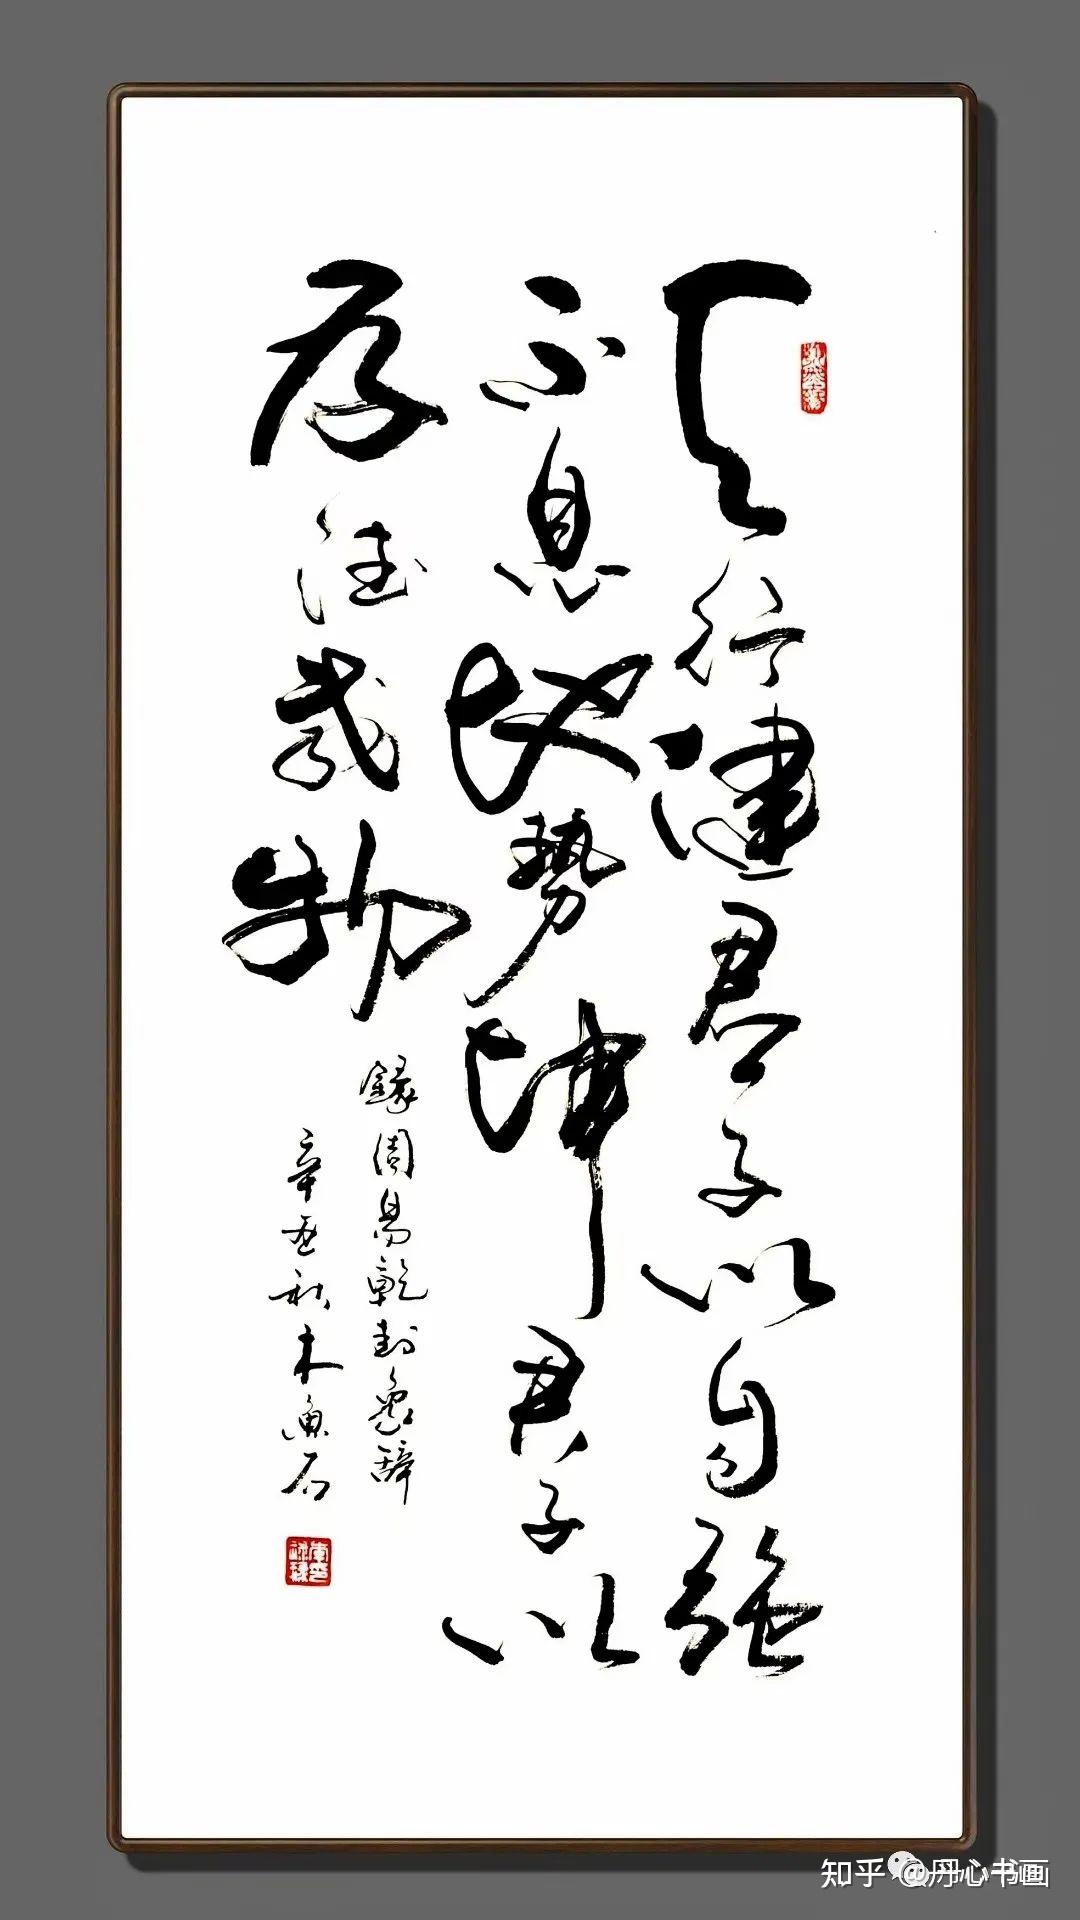 天行健君子以自强
不息地势坤君子以
厚德载物
録周易乾卦象辞
辛丑秋木魚石
知乎 @丹心书画